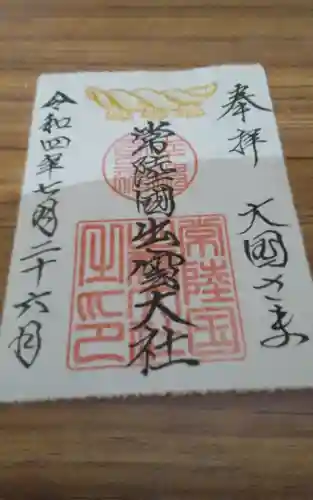 奉拝
大国さま
常陸國出雲大社
令和四年七月二十六月
常陸国
之印